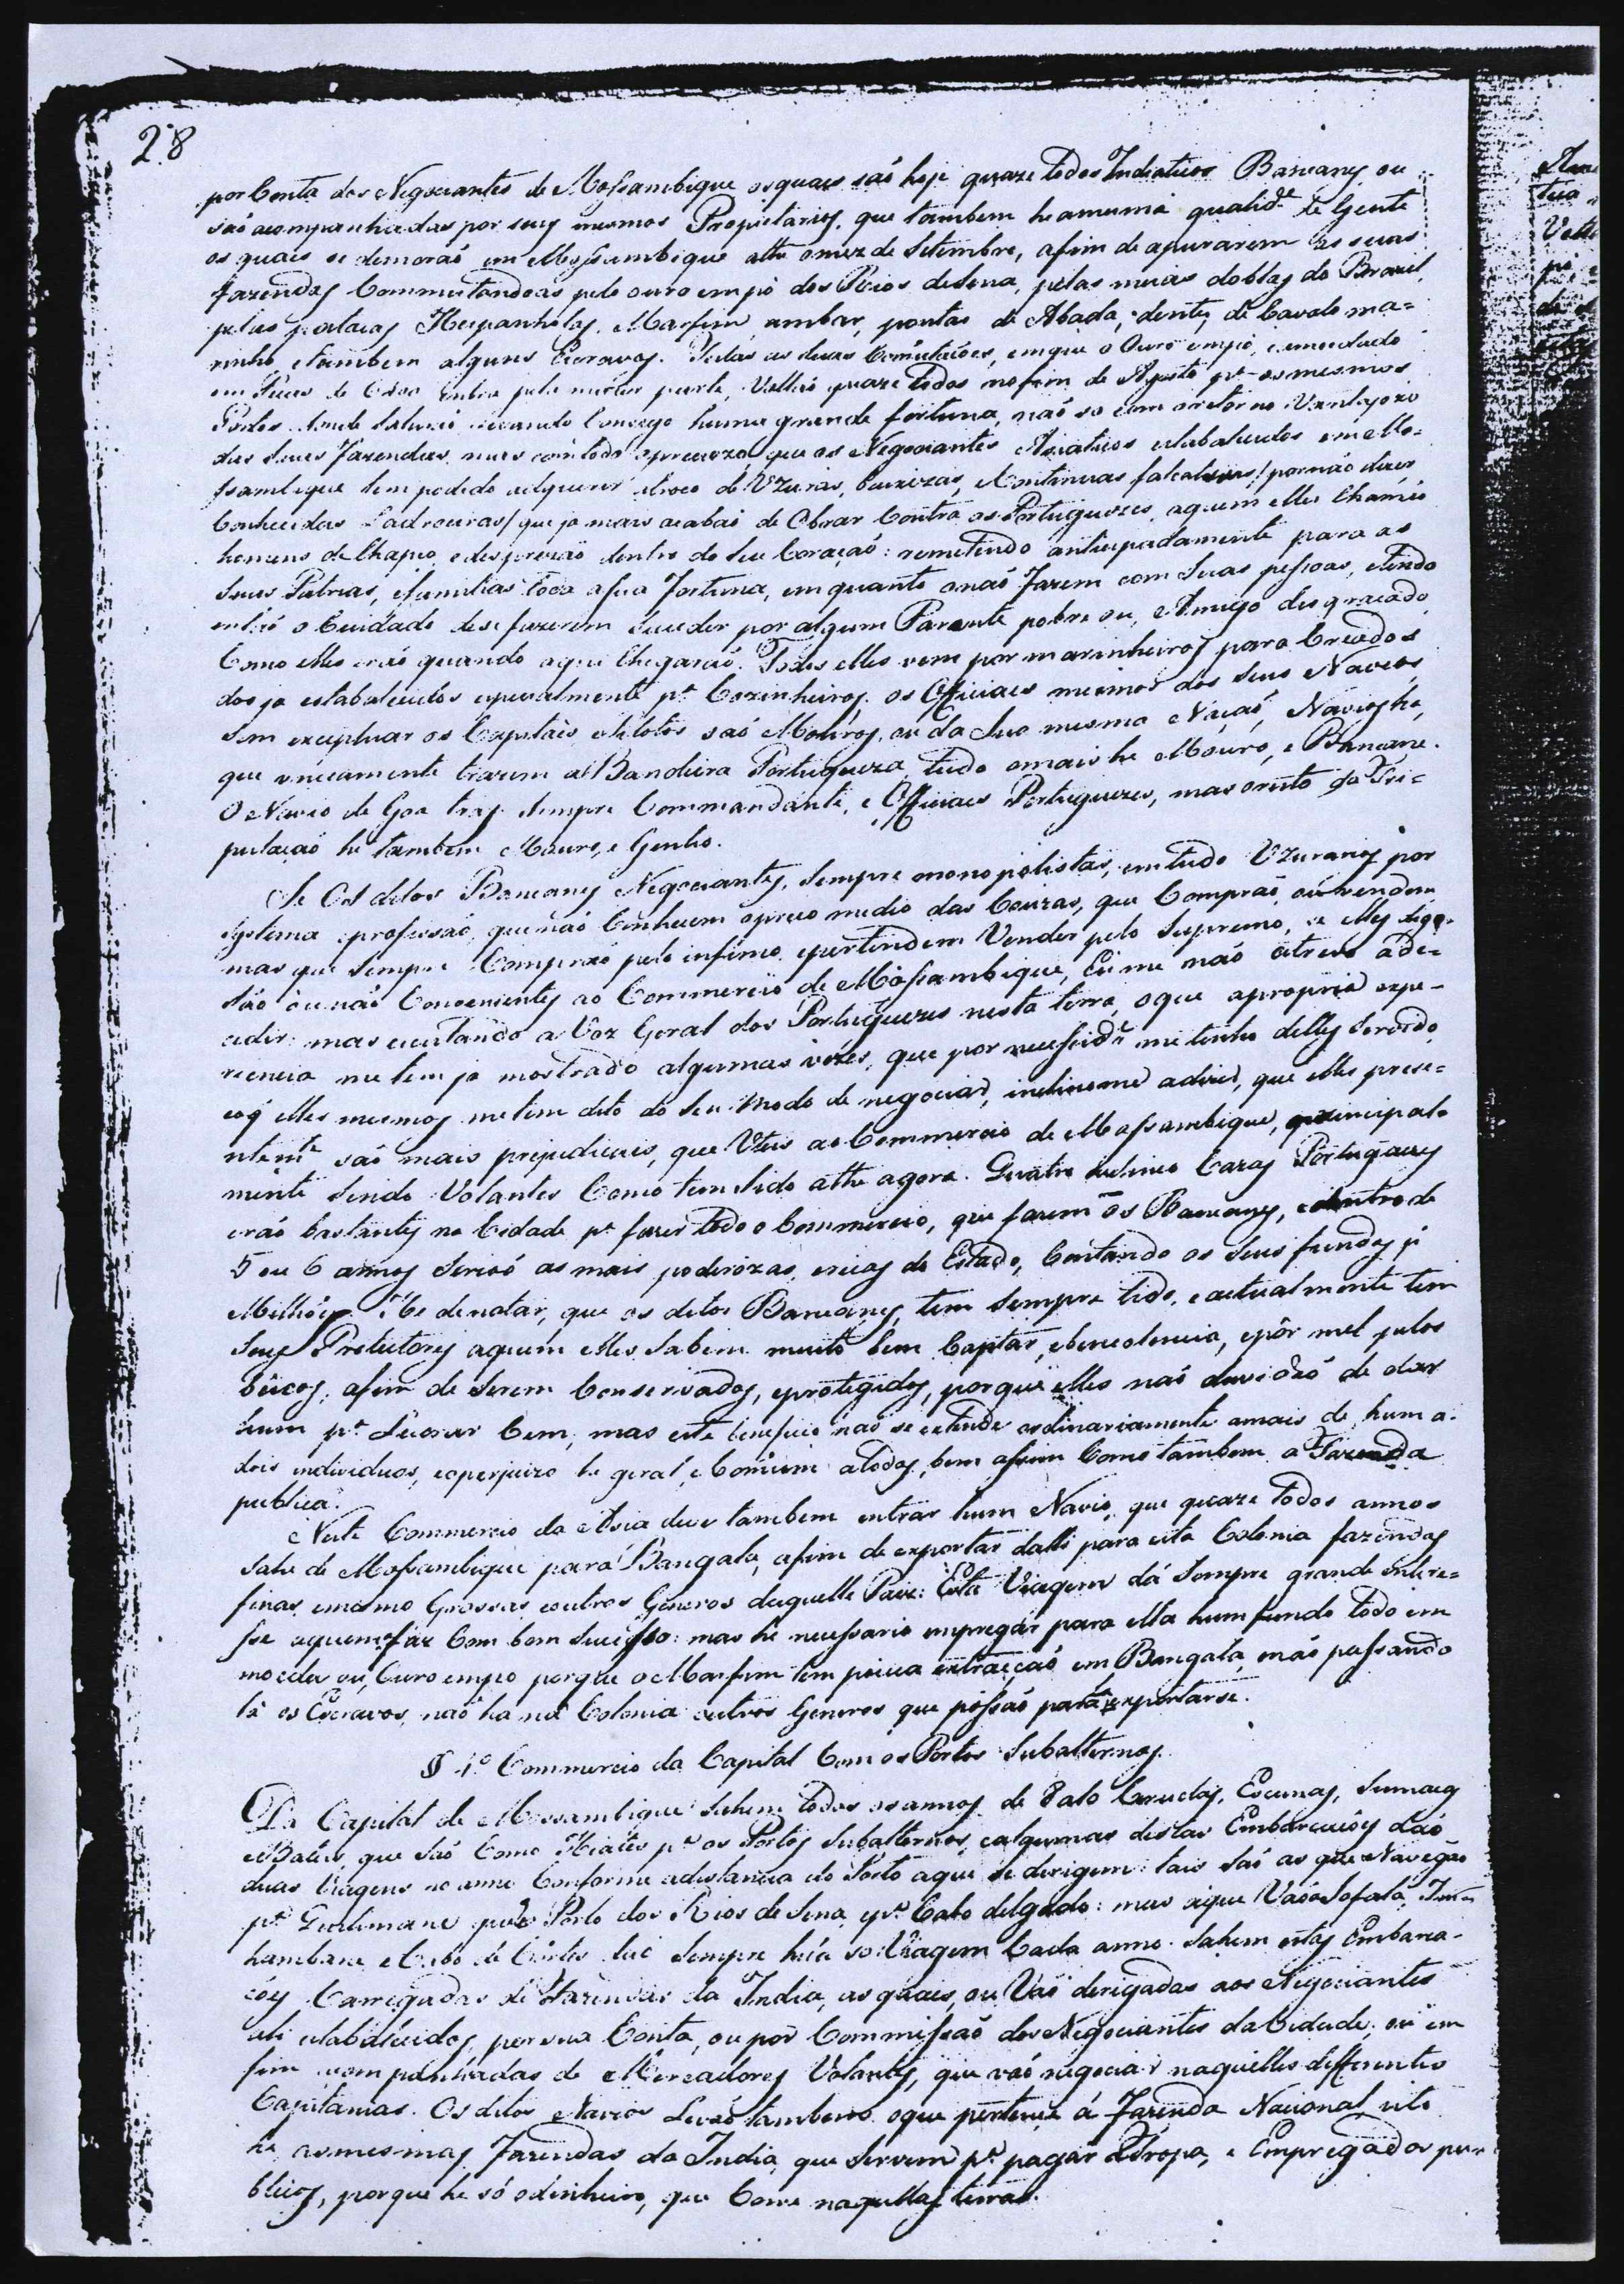 28
por Conta dos Negociantes de Mossambique osquaes saó hoje quaze todos Indiaticos Baneanes, ou
saó acompanhadas por seus mesmos Propietarios, que tambem he amesma qualid.e de Gente
os quais se demoraó em Mossambique athe omez de Setembro, afim de apurarem as suas
fazendas Commutandoas pelo ouro empó dos Rios deSena, pelas meias doblas do Brazil,
pelas patacas Hespanholas, Marfim, ambar, pontas de Abada, dentes de Cavalo ma=
rinho, etambem alguns Escravos. Feitas as suas Comutaçoes, emque o Ouro empó,
entra pela maior parte, Voltaó quaze todos nofim de Agosto p.a osmesmos
Portos donde Sahiraó levando Comsigo huma grande fortuna, naó so com oretorno Vantajozo
das Suas fazendas mas com toda apreciozo que os Negociantes Aziaticos estabalecidos emMo=
ssambique tem podido adquirir atroco de Uzuras, baixezas, eContinuas falcatruas / pornaõ dizer
Conhecidas Ladroeiras / que ja mais acabaó de Obrar Contra os Portuguezes aquem elles Chamaõ
homens de Chapeo, edesprezaõ dentro do Seu Coraçaó: remetendo antecipadamente para as
Suas Patrias, efamilias toda aSua Fortuna, emquanto onaó fazem com Suas pessoas, etendo
entaó o Cuidado dese fazerem Suceder por algum Parente pobre ou Amigo desgraçado
Como elles eraó quando aqui Chegaraó. Todos elles vem por marinheiros para Creados
dos ja estabalecidos especialmente p.a Cozinheiros, os Officiaes mesmos dos Seus Navios,
Sem exceptuar os Capitaẽs, ePilotos saó Mouros, ou da Sua mesma Naçaó, Navios ha,
que unicamente trazem aBandeira Portugueza, tudo omais he Mouro, e Baneane.
O Navio de Goa traz Sempre Commandante, e Officiaes Portuguezes, mas oresto da Tri=
pulaçaó he tambem Mouro, e Gentio.
Se Os ditos Baneanes Negociantes, Sempre monopolistas, emtudo Uzurarios por
Systema eprofissaó, que naó Conhecem opreço medio das Couzas, que Compraó ou vendem
mas que Sempre Compraó pelo infimo, epertendem Vender pelo Supremo, se elles digo
Saõ ou naó Convenientes ao Commercio de Mossambique, Eu me naó atrevo ade=
cidir: mas escutando a Voz Geral dos Portuguezes nesta terra, oque apropria expe=
riencia me tem ja mostrado algumas vezes, que por necessid.e me tenho delles Servido,
eoq' elles mesmos me tem dito do Seu modo de negociar, inclinome adizer, que elles preze=
ntem.te saó mais prejudiciais, que Uteis ao Commercio de Mossambique, principal=
mente Sendo Volantes Como tem Sido athe agora. Quatro ou Sinco Cazas Portuguezas
eraó bastantes na Cidade p.a fazer todo o Commercio, que fazem os Baneanes, edentro de
5 ou 6 annos Seriaó as mais poderozas, ericas do Estado, Contando os Seus fundos p.r
Milhões. He denotar, que os ditos Baneanes, tem Sempre tido, e actualmente tem
Seus Protectores aquem elles Sabem muito bem Captar, abenevolencia, epôr mel pelos
beicos, afim de Serem Conservados, eprotegidos, porque elles naó duvidaó de dar
hum p.a Lucrar Cem, mas este beneficio naó se extende ordinariamente amais de hum a
dois individuos, eoperjuizo he geral, eComum atodos, bem assim Como tambem a Fazenda
publica.
Neste Commercio da Azia deve tambem entrar hum Navio, que quaze todos annos
Sahe de Mossambique para Bangala, afim de exportar dalli para esta Colonia fazendas
finas, emesmo Grossas eoutros Generos daquelle Paiz: Esta Viagem dá Sempre grande intere=
sse aquem afaz Com bom Sucesso: mas he necessario empregar para ella hum fundo todo em
moeda, ou Ouro empó porque oMarfim tem pouca extracçaó em Bangala, enaó passando
lá os Escravos, naó ha na Colonia outros Generos que possaó para exportarse.
§ 4.º Commercio da Capital Com os Portos Subalternos.
Da Capital de Mossambique Sahem todos os annos de Palo Corvetas, Escunas, Sumacas
eBateis, que Saó Como Hiates p.a os Portos Subalternos, ealgumas destas Embarcaçoẽs daó
duas Viagens no anno Conforme adistancia do Porto aque se derigem: tais Saó as que Navegaõ
p.a Quilimane Porto dos Rios de Sena, ep.a Cabo delgado: mas aque Vaó aSofala, In=
hambane eCabo de Correntes daó Sempre húa só Viagem Cada anno. Sahem estas Embarca=
cões Carregadas de Fazendas da India, as quais, ou Vaó derigadas aos Negociantes
ali estabalecidos, porsua Conta, ou por Commissaó dos Negociantes daCidade; ou em
fim acompanhadas de Mercadores Volantes, que vaó negociar naquelles differentes
Capitanias. Os ditos Navios Levaó tambem oque pertence á Fazenda Nacional, isto
he asmesmas Fazendas da India, que Servem p.a pagar aTropa, e Empregados pu=
blicos, porque he só odinheiro, que Corre naquellas terras.